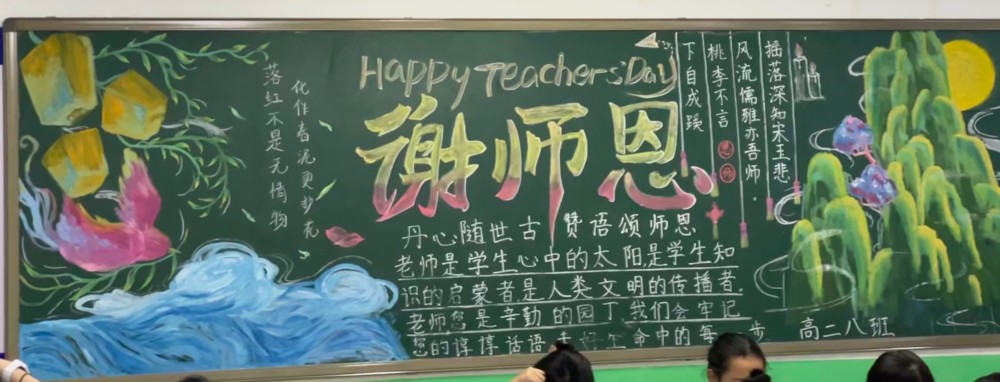 落红不是无情物
化作春泥更护花
Happy Teachers' Day
谢师恩
丹心随世古 赞语颂师恩
老师是学生心中的太阳,是学生知
识的启蒙者是人类文明的传播者.
老师您是辛勤的园丁我们会牢记
您的谆谆话语 走好生命中的每一步
摇落深知宋玉悲
风流儒雅亦吾师
桃李不言
下自成蹊
恩师
高二八班